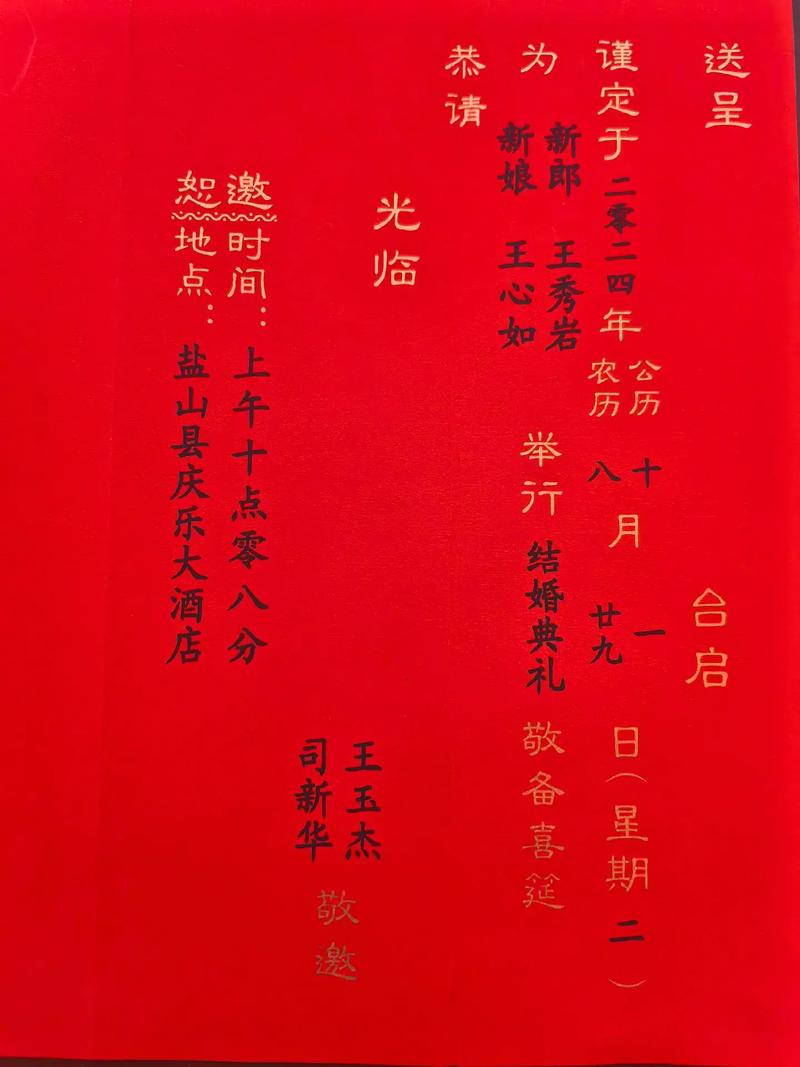 送呈 台启
谨定于二零二四年 公历 十 月 一 日（星期二）
农历 八 廿九
为 新郎 王秀岩 举行 结婚典礼 敬备喜筵
新娘 王心如
恭请
光临
王玉杰
司新华
敬邀
邀时间：上午十点零八分
恕地点：盐山县庆乐大酒店